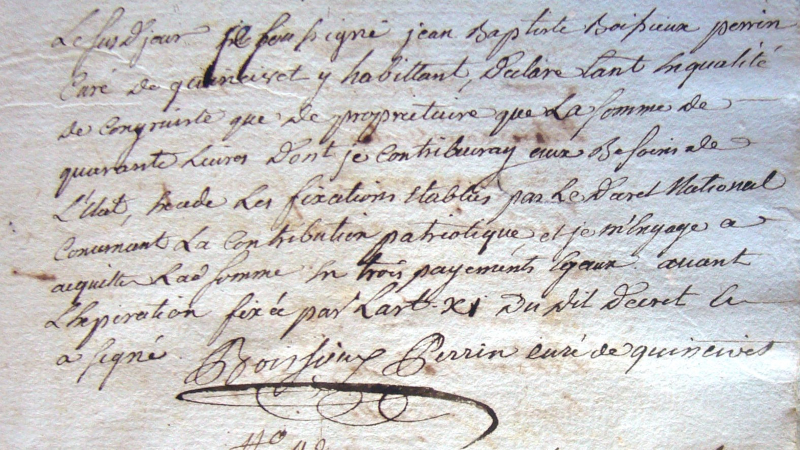 Le susd jour je soussigné jean Baptiste Boissieux perrin
Curé De quincivet y habittant, Declare tant En qualité
De Congruiste que De proprietaire que La Somme De
quarante Livres Dont je Contribueray aux Besoins de
L'Etat, Excede Les fixations Etablies par Le Decret National
Concernant La Contribution patriotique, et je m'Engage a
aquitter Lad Somme En trois payements Egaux avant
L'Expiration fixée par L'art XI Du Dit Decret Et
a signé Boissieux Perrin curé de quincivet